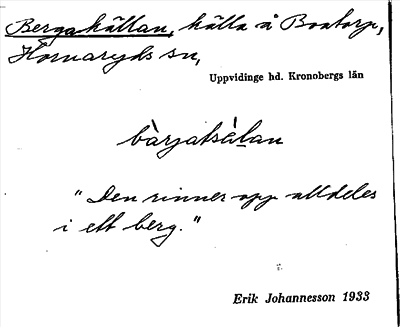 Bergakällan, källa å Boatorp,
Hornaryds sn,
Uppvidinge hd. Kronobergs län
bàrjatsè̠lan
"Den rinner opp alldeles
i ett berg."
Erik Johannesson 1933